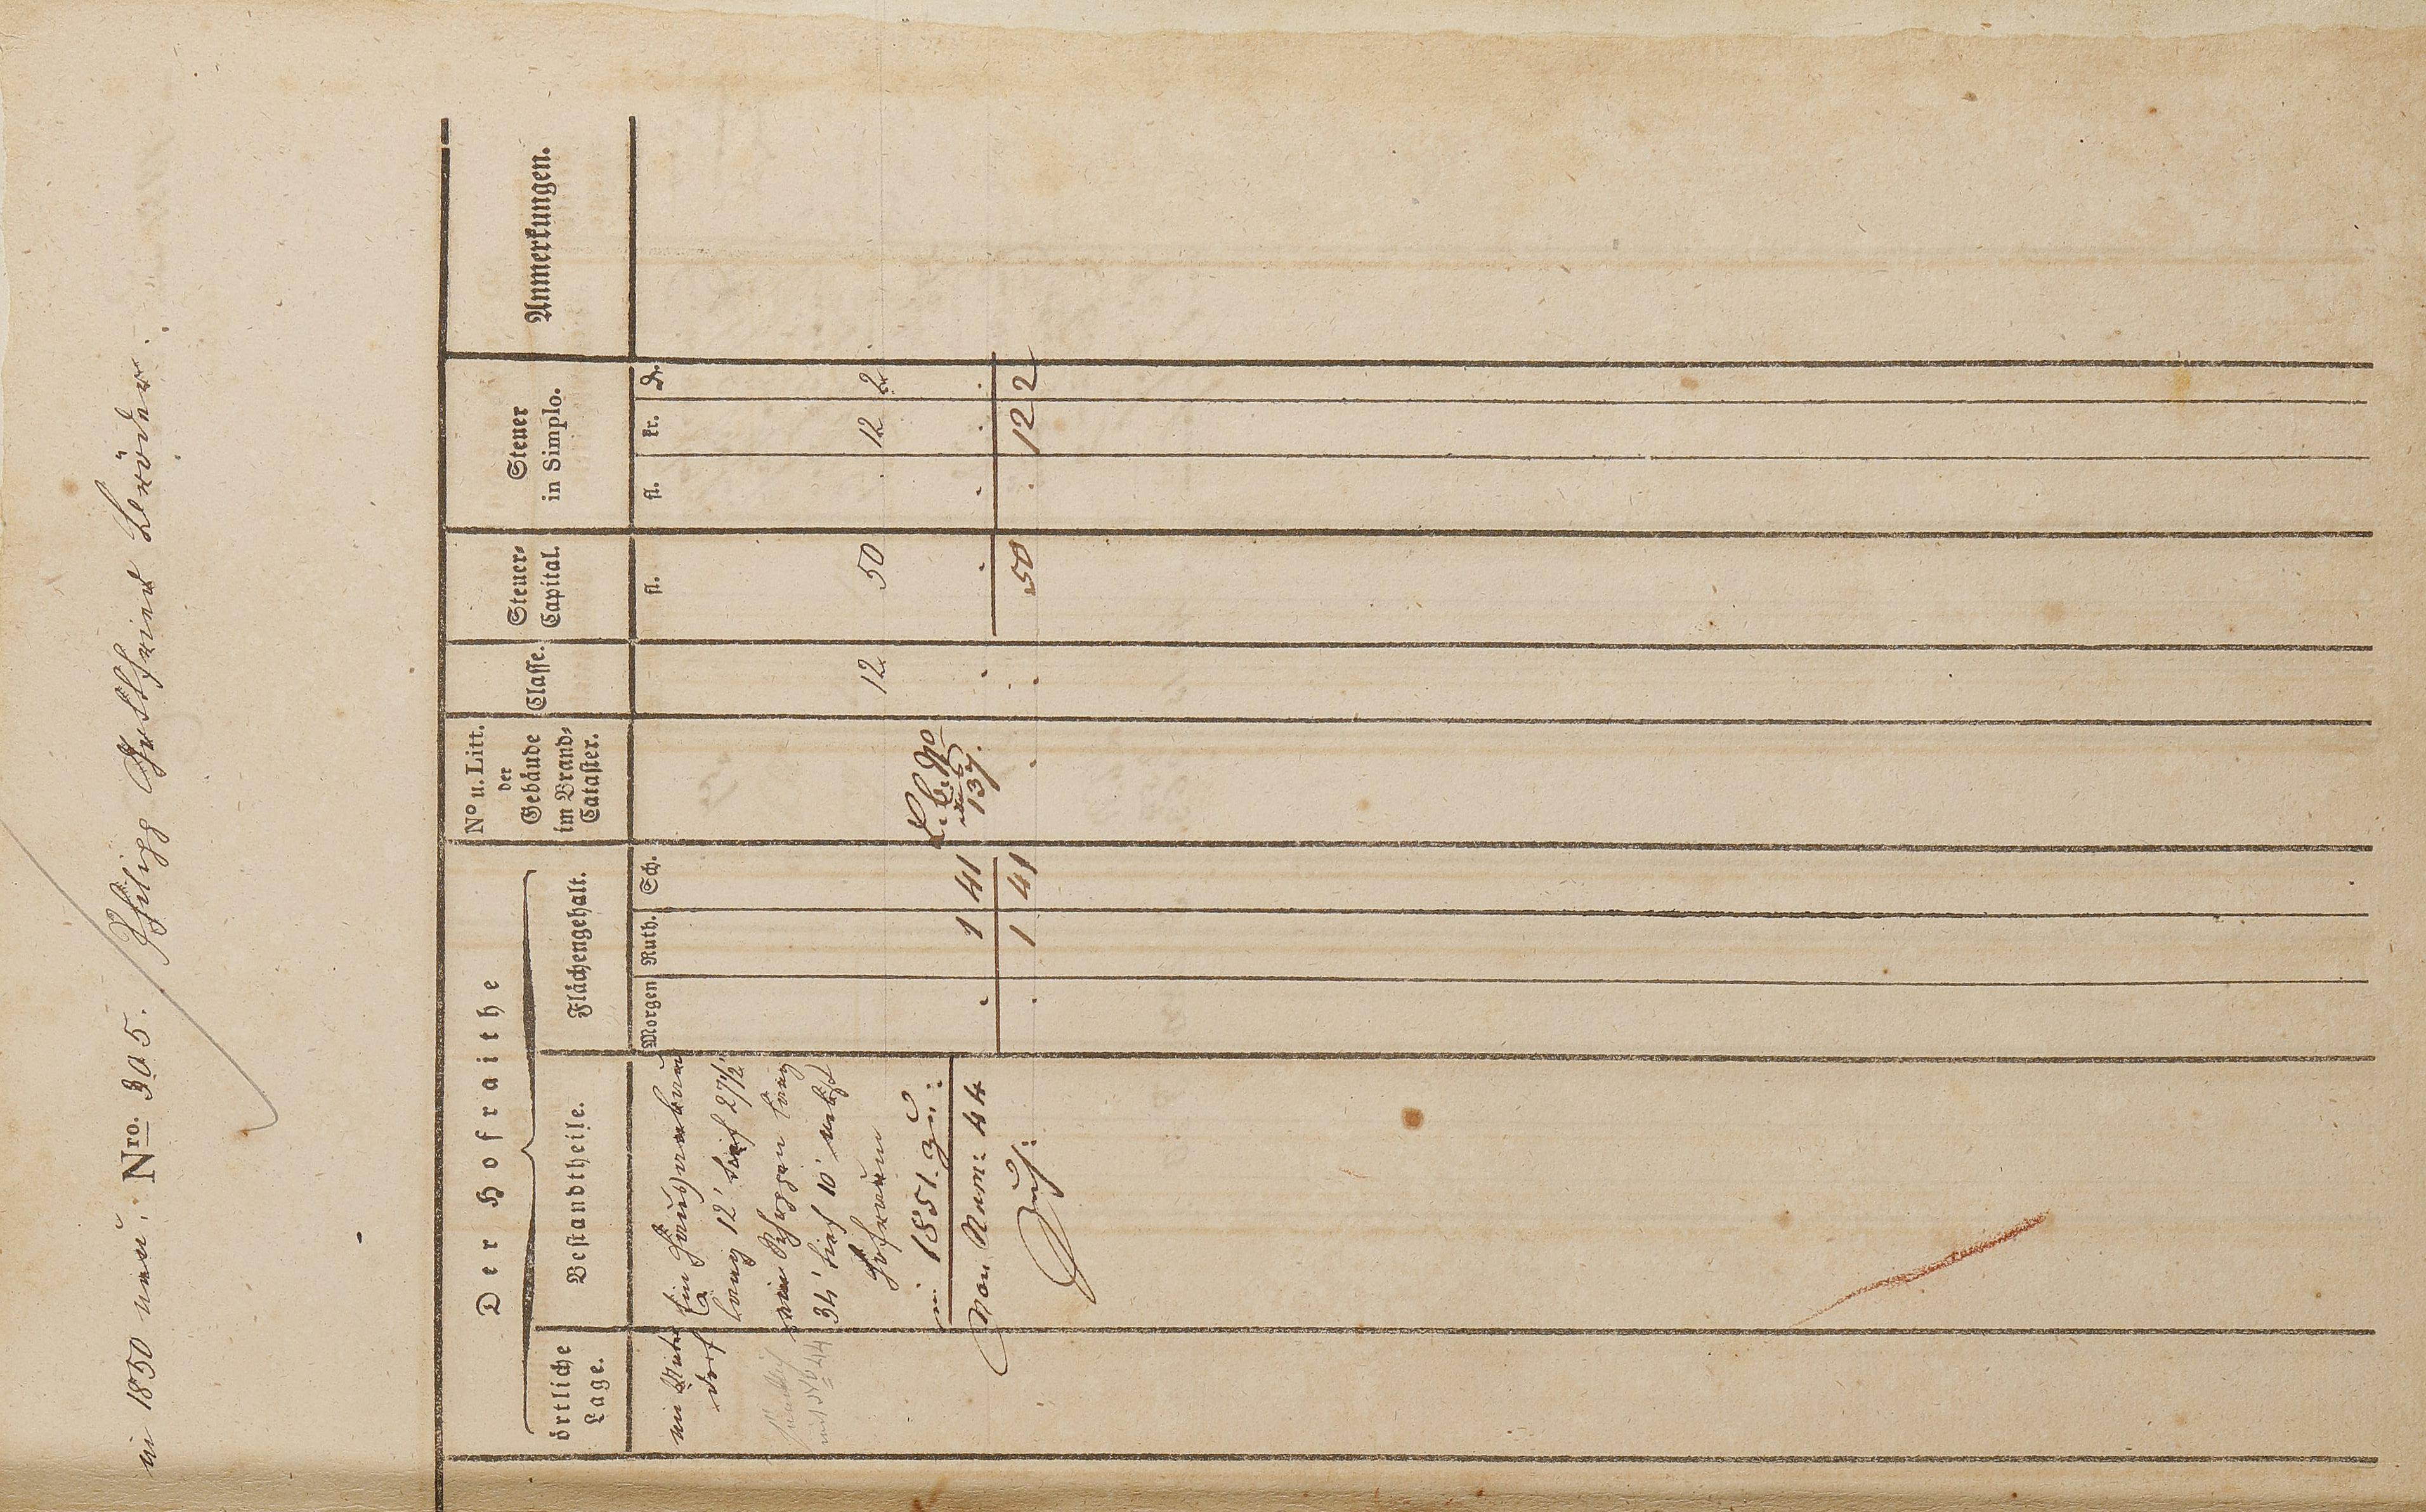 in 1850 neu. Nro. 305. Philipp Gottfried Bröder.
Der Hofraithe
örtliche
Lage.
Bestandtheile.
Flächengehalt.
Morgen Ruth. Sch.
No u. Litt.
der
Gebäude
im Brand-
Cataster.
Classe.
Steuer-
Capital.
fl.
Steuer
in Simplo.
fl. kr. d.
Anmerkungen.
im
dorf
Ein Hausgen
lang 12' tief 27½'
ein Schoppen lang
34' tief 10' nebst
Hofraum
12 50 . 12 2
in 1851. Zu:
. 1 41
137. . . . . .
Von Num: 44
. 1 41 . . 50 . 12 2